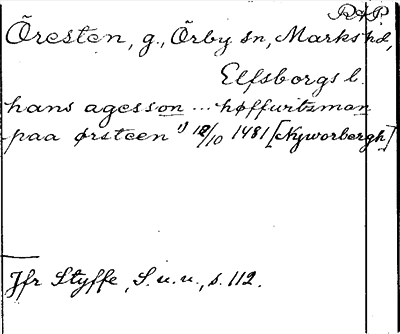 RAP.
Öresten, g., Örby sn, Marks hd,
Elfsborgs l.
hans agesson ... høffuitzman
paa ørsteen ¹⁾ 18/10 1481 [Nyworbergh]
Jfr Styffe, S. u. u., s. 112.